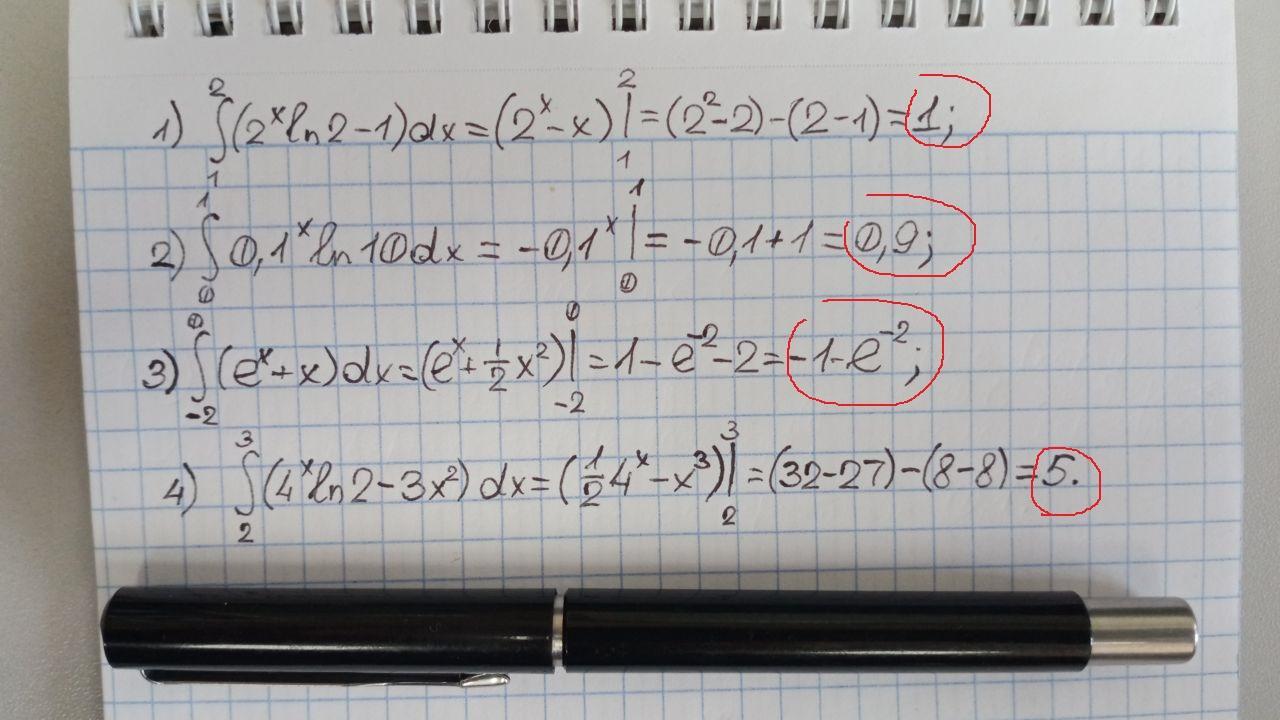 1) ∫₁² (2ˣ ln 2 − 1) dx = (2ˣ − x) |₁² = (2² − 2) − (2 − 1) = 1;
2) ∫₀¹ 0,1ˣ ln 10 dx = −0,1ˣ |₀¹ = −0,1 + 1 = 0,9;
3) ∫₋₂⁰ (eˣ + x) dx = (eˣ + 1/2 x²) |₋₂⁰ = 1 − e⁻² − 2 = −1 − e⁻²;
4) ∫₂³ (4ˣ ln 2 − 3x²) dx = (1/2 4ˣ − x³) |₂³ = (32 − 27) − (8 − 8) = 5.